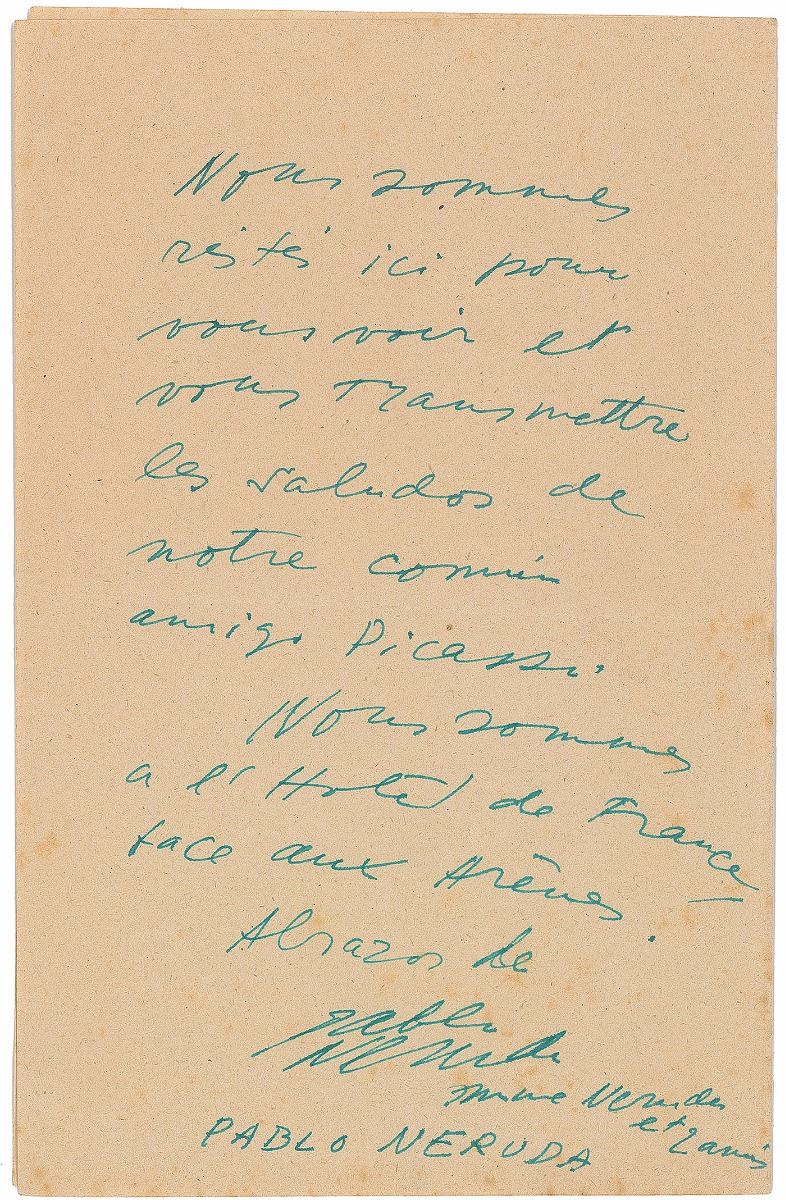 Nous sommes
restés ici pour
vous voir et
vous transmettre
les saludos de
notre común
amigo Picasso.
Nous sommes
a l'Hotel de France
face aux Arènes.
Abrazos de
Pablo
Neruda
mme Neruda
et 2 amis
PABLO NERUDA